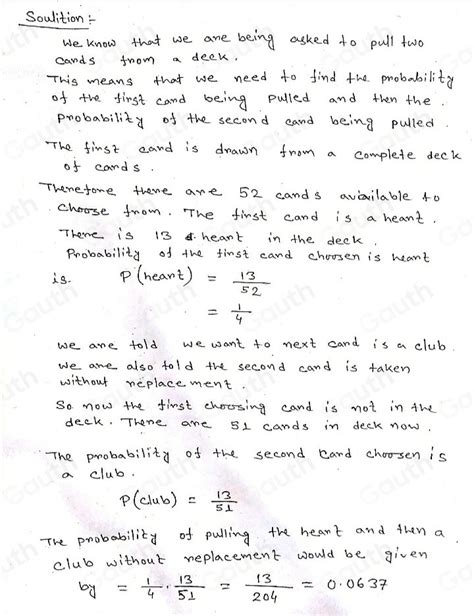 Soulition :-
We know that we are being asked to pull two
cards from a deck.
This means that we need to find the probability
of the first card being pulled and then the.
Probability of the second card being pulled.
The first card is drawn from a complete deck
of cards.
Therefore there are 52 cards available to
choose from. The first card is a heart.
There is 13 heart in the deck.
Probability of the first card choosen is heart
is. P(heart) = 13/52
= 1/4
we are told we want to next card is a club.
we are also told the second card is taken
without replacement.
So now the first choosing card is not in the
deck. There are 51 cards in deck now.
The probability of the second card choosen is
a club.
P(club) = 13/51
The probability of pulling the heart and then a
club without replacement would be given
by = 1/4 . 13/51 = 13/204 = 0.0637
Gauth